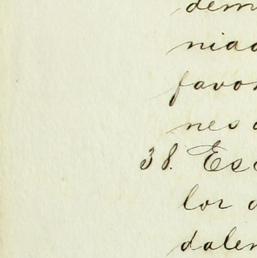 dem
niad
favor
nes
38. Esc
lor
dalen